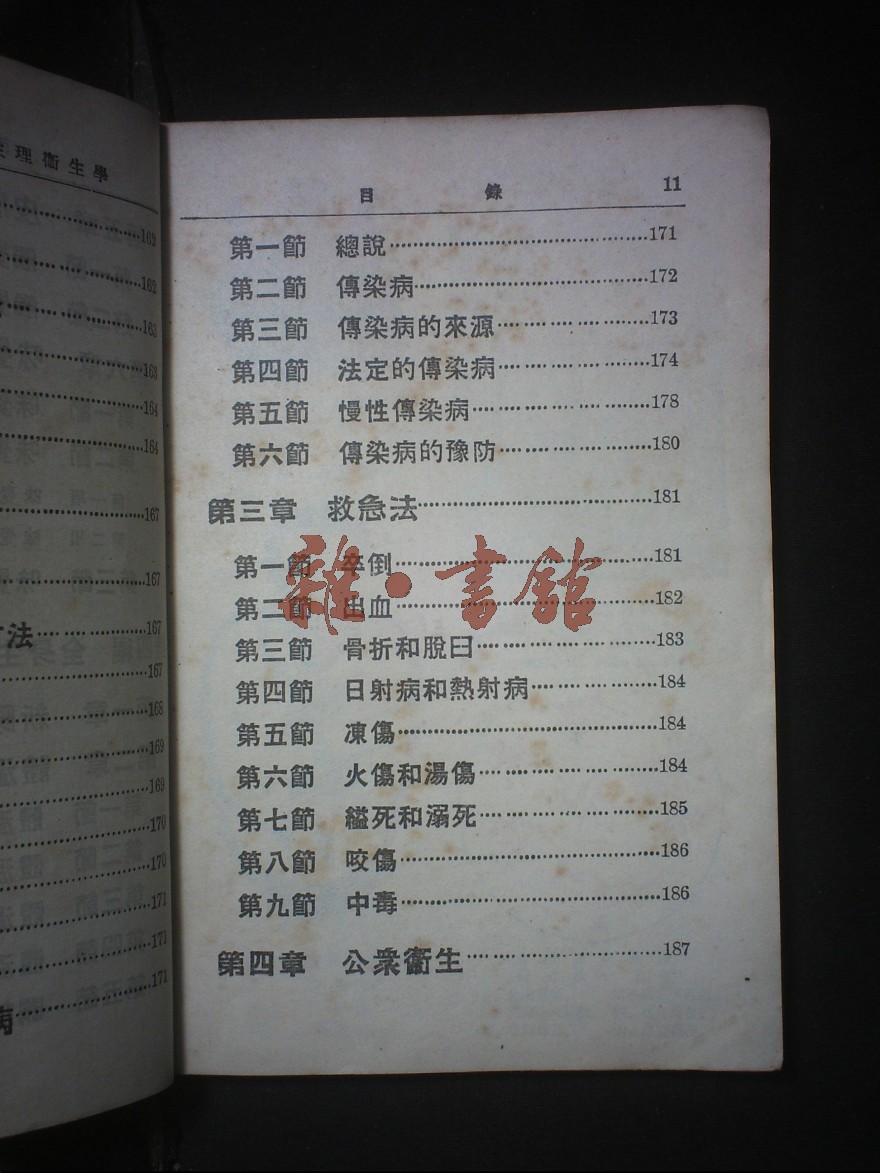 生理衞生學
162
162
163
163
164
164
167
167
法 167
167
168
169
169
170
170
171
171
171
病
目 錄 11
第一節 總說 171
第二節 傳染病 172
第三節 傳染病的來源 173
第四節 法定的傳染病 174
第五節 慢性傳染病 178
第六節 傳染病的豫防 180
第三章 救急法 181
第一節 卒倒 181
第二節 出血 182
第三節 骨折和脫臼 183
第四節 日射病和熱射病 184
第五節 凍傷 184
第六節 火傷和湯傷 184
第七節 縊死和溺死 185
第八節 咬傷 186
第九節 中毒 186
第四章 公衆衞生 187
雜·書館